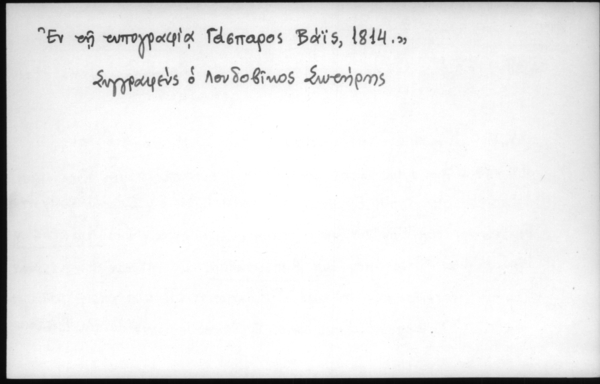 Ἐν τῇ τυπογραφίᾳ Γάσπαρος Βάϊς, 1814.»
Συγγραφεὺς ὁ Λουδοβῖκος Σωτήρης